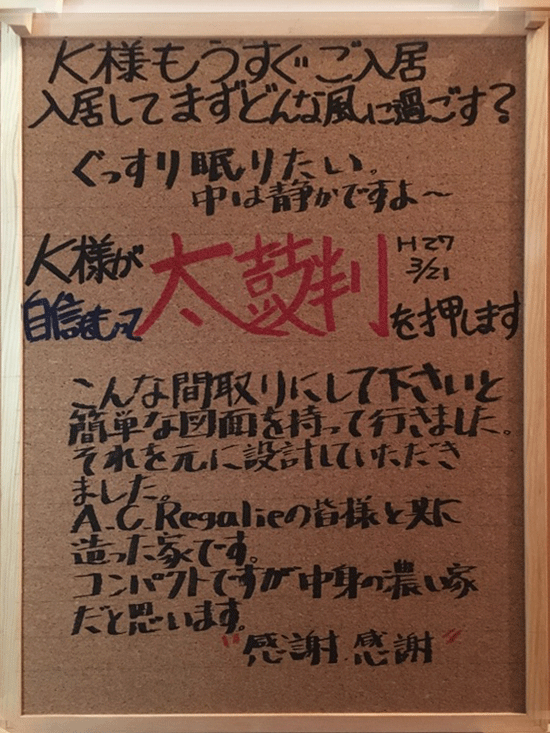 K様もうすぐご入居
入居してまずどんな風に過ごす?
ぐっすり眠りたい。
中は静かですよ〜
K様が
自信をもって
太鼓判
H27
3/21
を押します
こんな間取りにして下さいと
簡単な図面を持って行きました。
それを元に設計していただき
ました。
A.C.Regalieの皆様と共に
造った家です。
コンパクトですが中身の濃い家
だと思います。
"感謝.感謝"